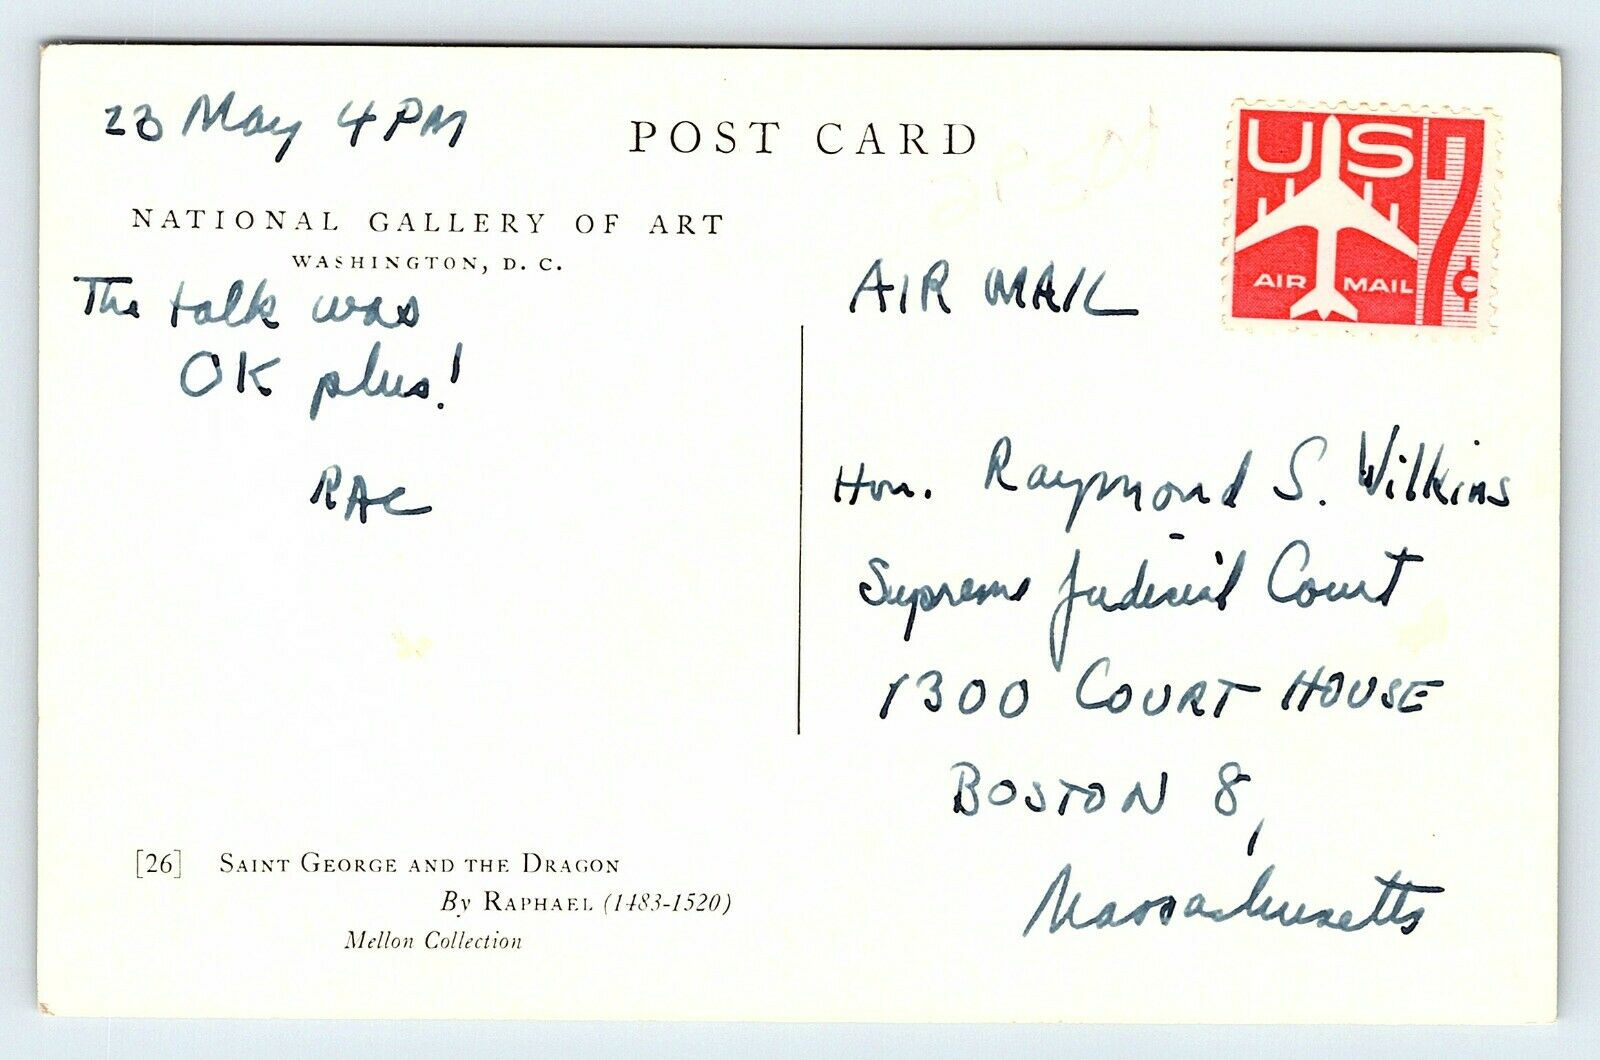 23 May 4 PM
POST CARD
NATIONAL GALLERY OF ART
WASHINGTON, D. C.
The talk was
OK plus!
RAC
[26] SAINT GEORGE AND THE DRAGON
By RAPHAEL (1483-1520)
Mellon Collection
US 7¢
AIR MAIL
AIR MAIL
Hon. Raymond S. Wilkins
Supreme Judicial Court
1300 COURT HOUSE
BOSTON 8,
Massachusetts